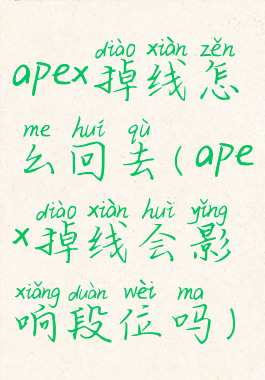 diào xiàn zěn
apex掉线怎
me huí qù
么回去（ape
diào xiàn huì yǐng
x掉线会影
xiǎng duàn wèi ma
响段位吗）